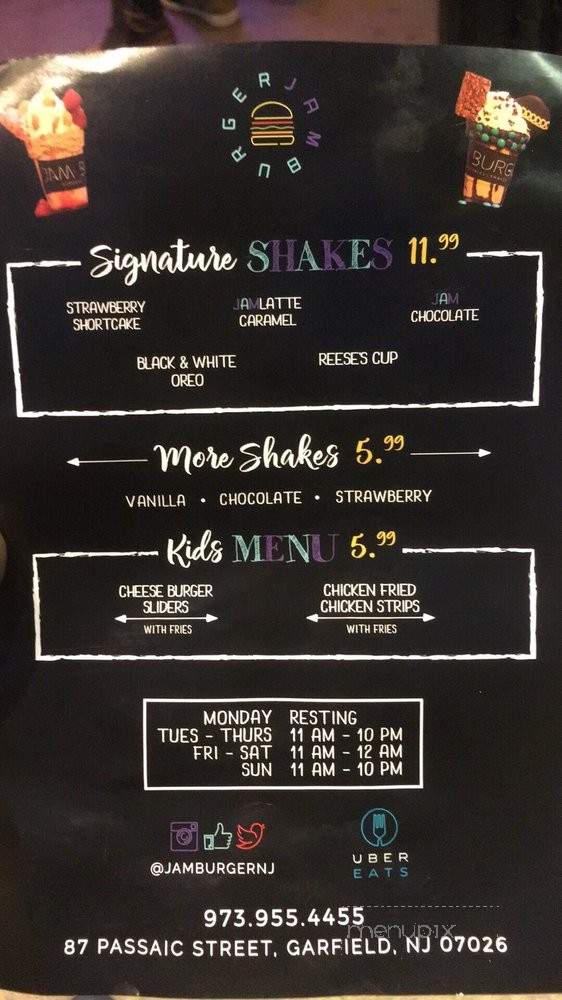 BURGERJAM
JAM B
BURG
Signature SHAKES 11.99
STRAWBERRY
SHORTCAKE
JAMLATTE
CARAMEL
JAM
CHOCOLATE
BLACK & WHITE
OREO
REESE'S CUP
More Shakes 5.99
VANILLA • CHOCOLATE • STRAWBERRY
Kids MENU 5.99
CHEESE BURGER
SLIDERS
WITH FRIES
CHICKEN FRIED
CHICKEN STRIPS
WITH FRIES
MONDAY RESTING
TUES - THURS 11 AM - 10 PM
FRI - SAT 11 AM - 12 AM
SUN 11 AM - 10 PM
@JAMBURGERNJ
UBER
EATS
973.955.4455
menupix
87 PASSAIC STREET, GARFIELD, NJ 07026